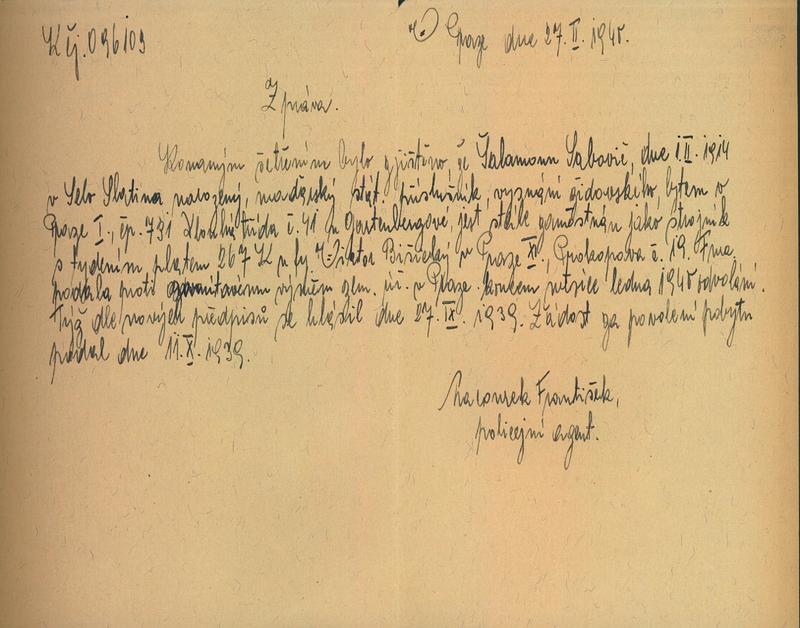 K čj. 096/09
V Praze dne 27. II. 1940.
Zpráva.
Konaným šetřením bylo zjištěno, že Šalamoun Sabovič, dne 1. II. 1914
v Selo Slatina narozený, maďarský stát. příslušník, vyznání židovského, bytem v
Praze I., čp. 731 třída č. 41 u Gartenbergové, jest stále zaměstnán jako strojník
s týdenním platem 267 K u fy Viktor v Praze XI., Prokopova č. 19. Fma
podala proti výměru zem. úř. v Praze koncem měsíce ledna 1940 odvolání.
Týž dle nových předpisů se hlásil dne 27. IX. 1939. Žádost za povolení pobytu
podal dne 11. X. 1939.
František,
policejní agent.